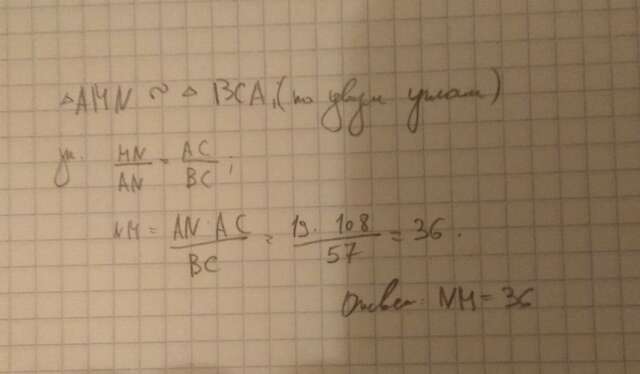 △AMN ~ △BCA, (по двум углам)
MN/AN = AC/BC;
NM = AN · AC / BC = 19 · 108 / 57 = 36.
Ответ: NM = 36